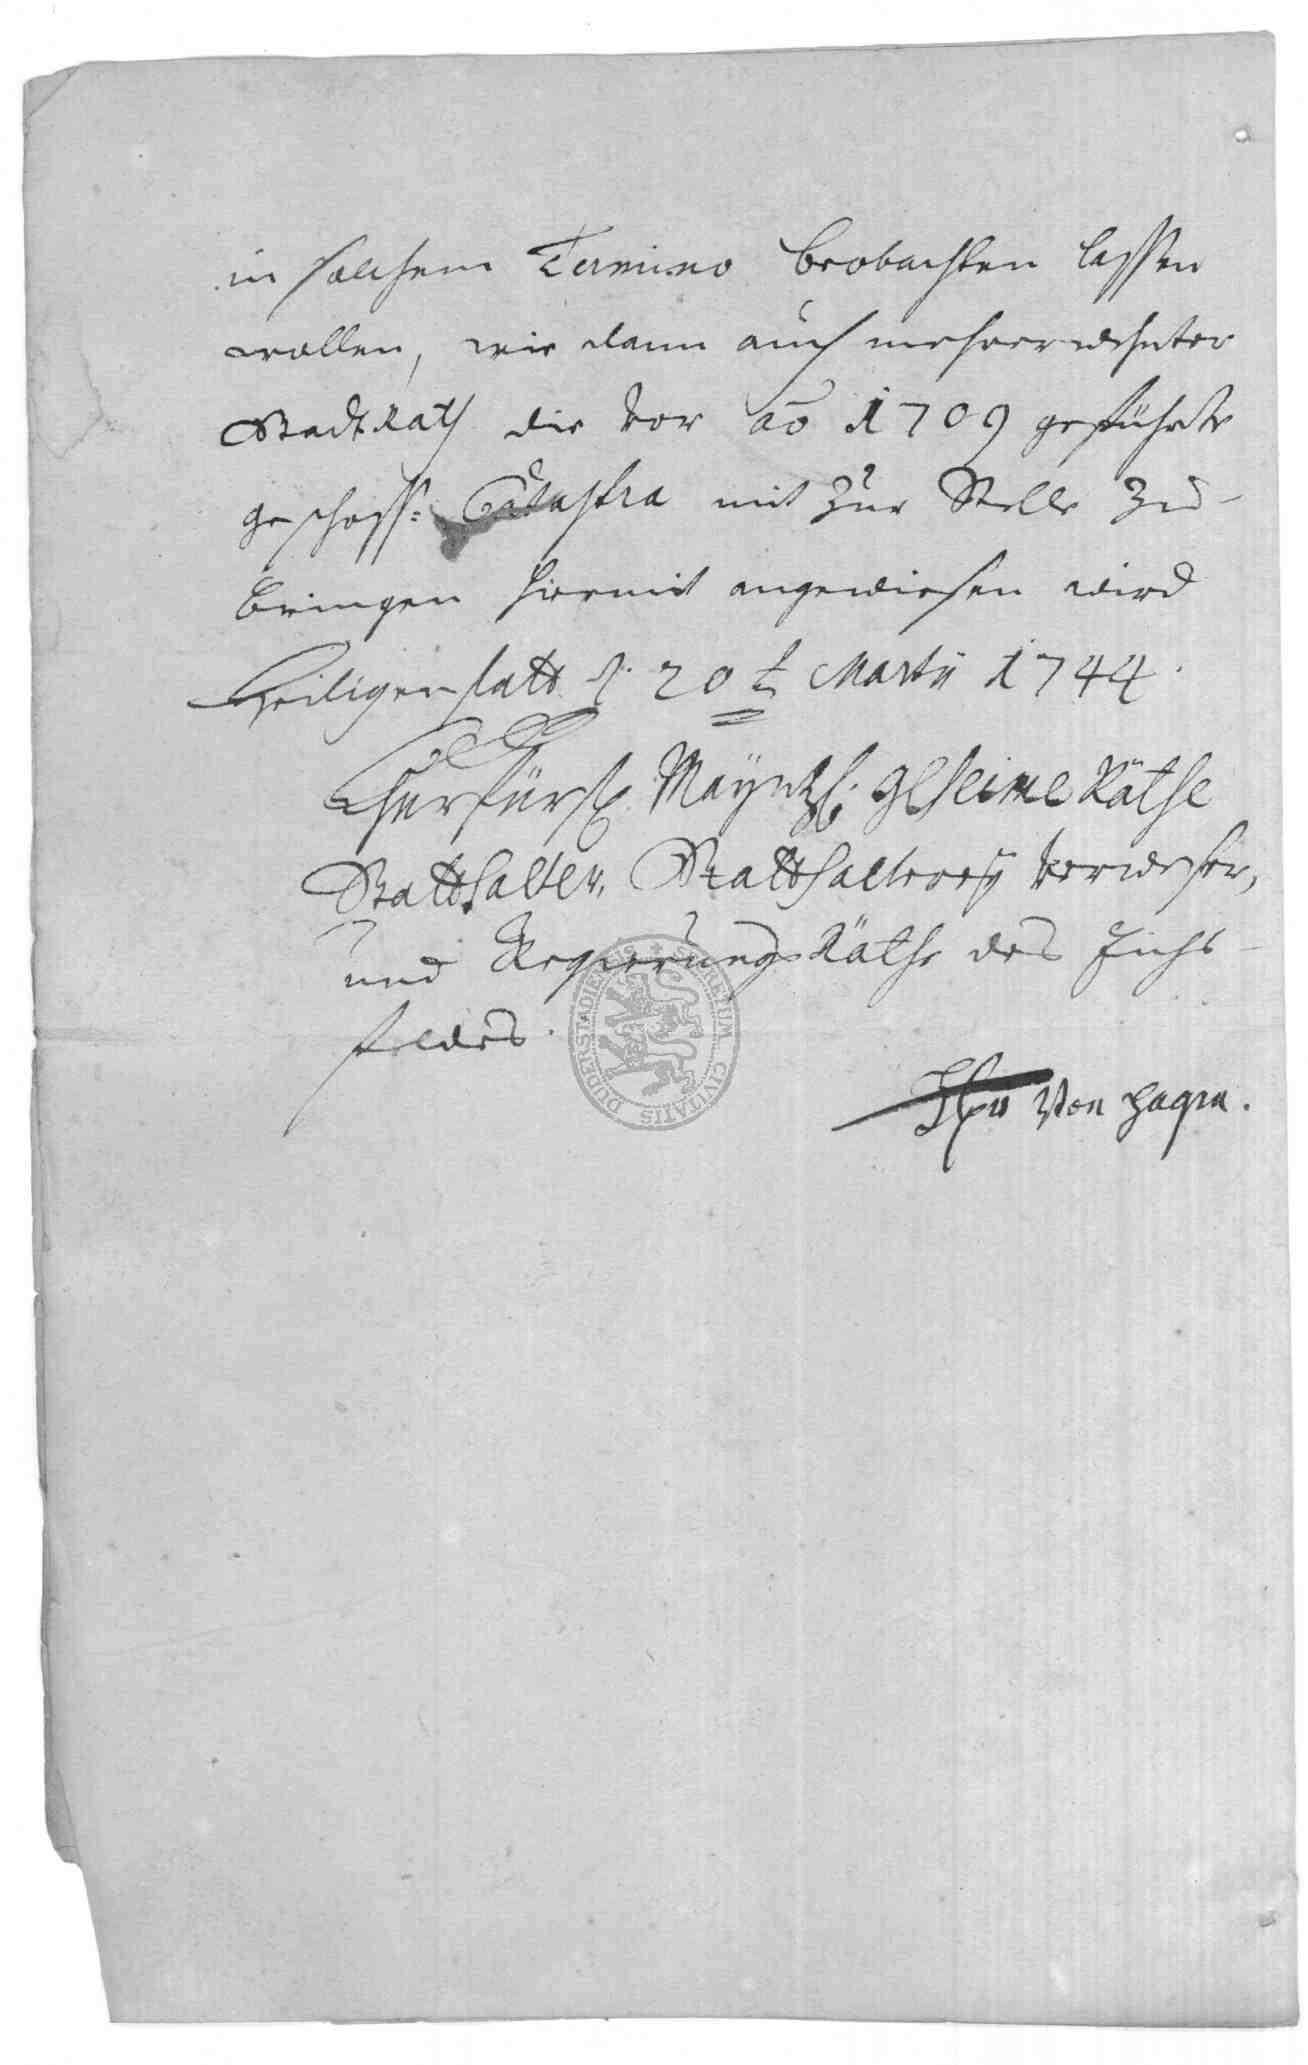 in solchem Termino beobachten lassen
wollen, wie dann auch mehrerwehnter
StadtRath die vor aō 1709 geführte
geschoss: Catastra mit zur Stelle zu-
bringen hiermit angewiesen wird
Heiligenstatt d. 20t Martii 1744.
Churfürstl. Mayntzl: geheime Räthe
Statthalter, Statthalterey Verweser,
und Regierungs Räthe des Eichs-
feldes.
von Hagen.
SECRETUM CIVITATIS DUDERSTADIENSIS